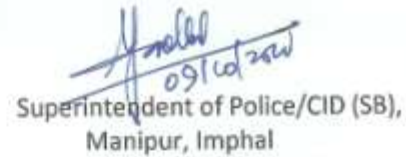 09/10/2020
Superintendent of Police/CID (SB),
Manipur, Imphal